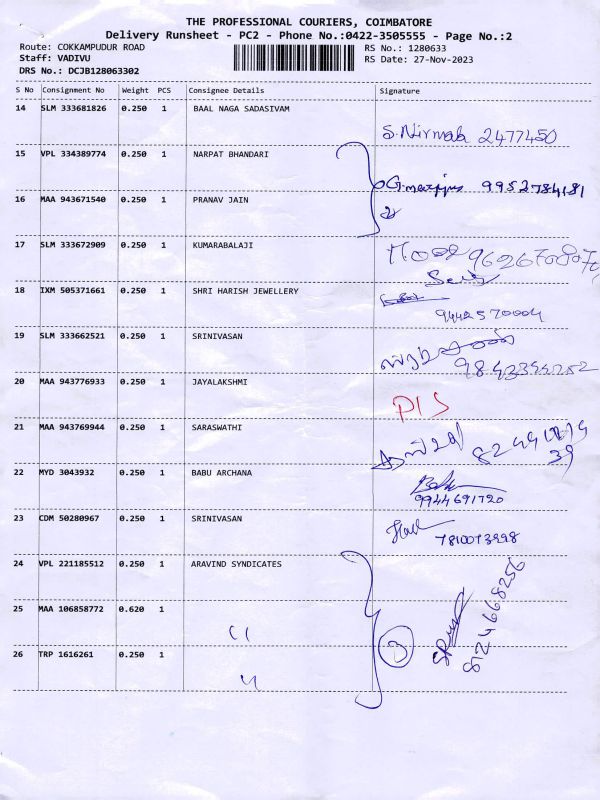 THE PROFESSIONAL COURIERS, COIMBATORE
Delivery Runsheet - PC2 - Phone No.:0422-3505555 - Page No.:2
Route: COKKAMPUDUR ROAD RS No.: 1280633
Staff: VADIVU RS Date: 27-Nov-2023
DRS No.: DCJB128063302
S No Consignment No Weight PCS Consignee Details Signature
14 SLM 333681826 0.250 1 BAAL NAGA SADASIVAM
S.Nirmala 2477450
15 VPL 334389774 0.250 1 NARPAT BHANDARI
9952784181
16 MAA 943671540 0.250 1 PRANAV JAIN
17 SLM 333672909 0.250 1 KUMARABALAJI
18 IXM 505371661 0.250 1 SHRI HARISH JEWELLERY
9442570004
19 SLM 333662521 0.250 1 SRINIVASAN
20 MAA 943776933 0.250 1 JAYALAKSHMI
PIS
21 MAA 943769944 0.250 1 SARASWATHI
22 MYD 3043932 0.250 1 BABU ARCHANA
9944691720
23 CDM 50280967 0.250 1 SRINIVASAN
24 VPL 221185512 0.250 1 ARAVIND SYNDICATES
25 MAA 106858772 0.620 1 "
3
8124668256
26 TRP 1616261 0.250 1 "